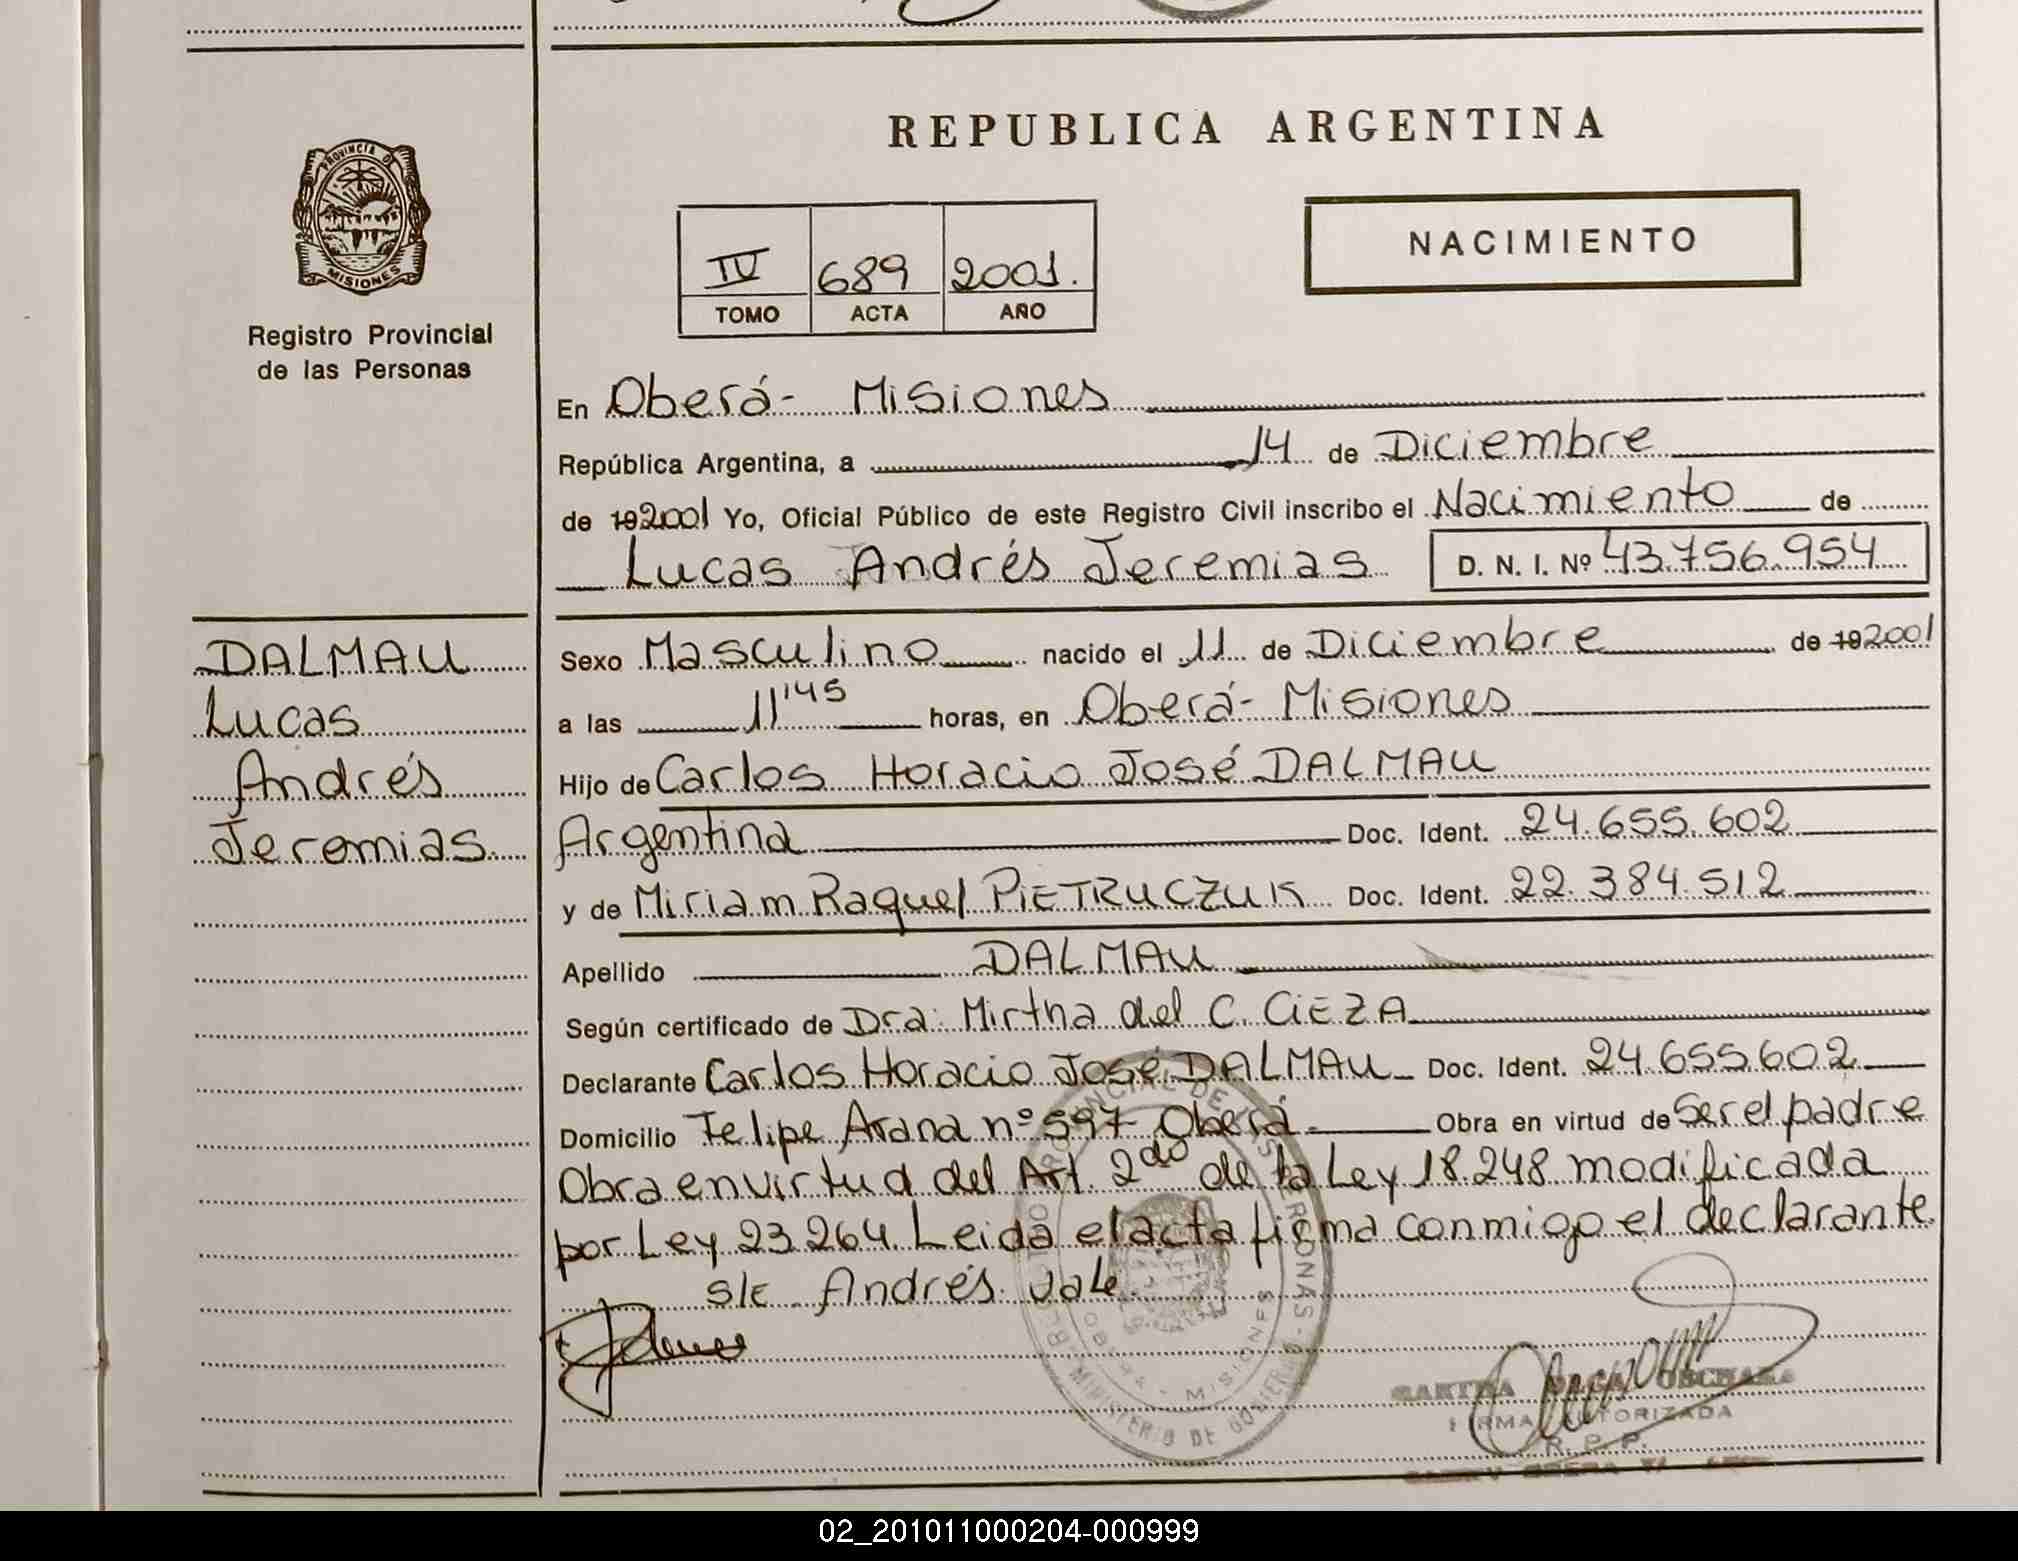 REPUBLICA ARGENTINA
PROVINCIA DE
MISIONES
Registro Provincial
de las Personas
NACIMIENTO
IV 689 2001.
TOMO ACTA AÑO
En Oberá- Misiones
República Argentina, a 14 de Diciembre
de 192001 Yo, Oficial Público de este Registro Civil inscribo el Nacimiento de
Lucas Andrés Jeremias D. N. I. Nº 43.756.954
DALMAU
Lucas
Andrés
Jeremias
Sexo Masculino nacido el 11 de Diciembre de 192001
a las 11'45 horas, en Oberá- Misiones
Hijo de Carlos Horacio José DALMAU
Argentina Doc. Ident. 24.655.602
y de Miriam Raquel PIETRUCZUK Doc. Ident. 22.384.512
Apellido DALMAU
Según certificado de Dra: Mirtha del C. CIEZA
Declarante Carlos Horacio José DALMAU Doc. Ident. 24.655.602
Domicilio Felipe Arana nº 597 Oberá Obra en virtud de Ser el padre
Obra en virtud del Art. 2do de la Ley 18.248 modificada
por Ley 23.264. Leida el acta firma conmigo el declarante
S/E Andrés vale.
MINISTERIO DE GOBIERNO
OBERA - MISIONES
FIRMA AUTORIZADA
R. P. P.
02_201011000204-000999